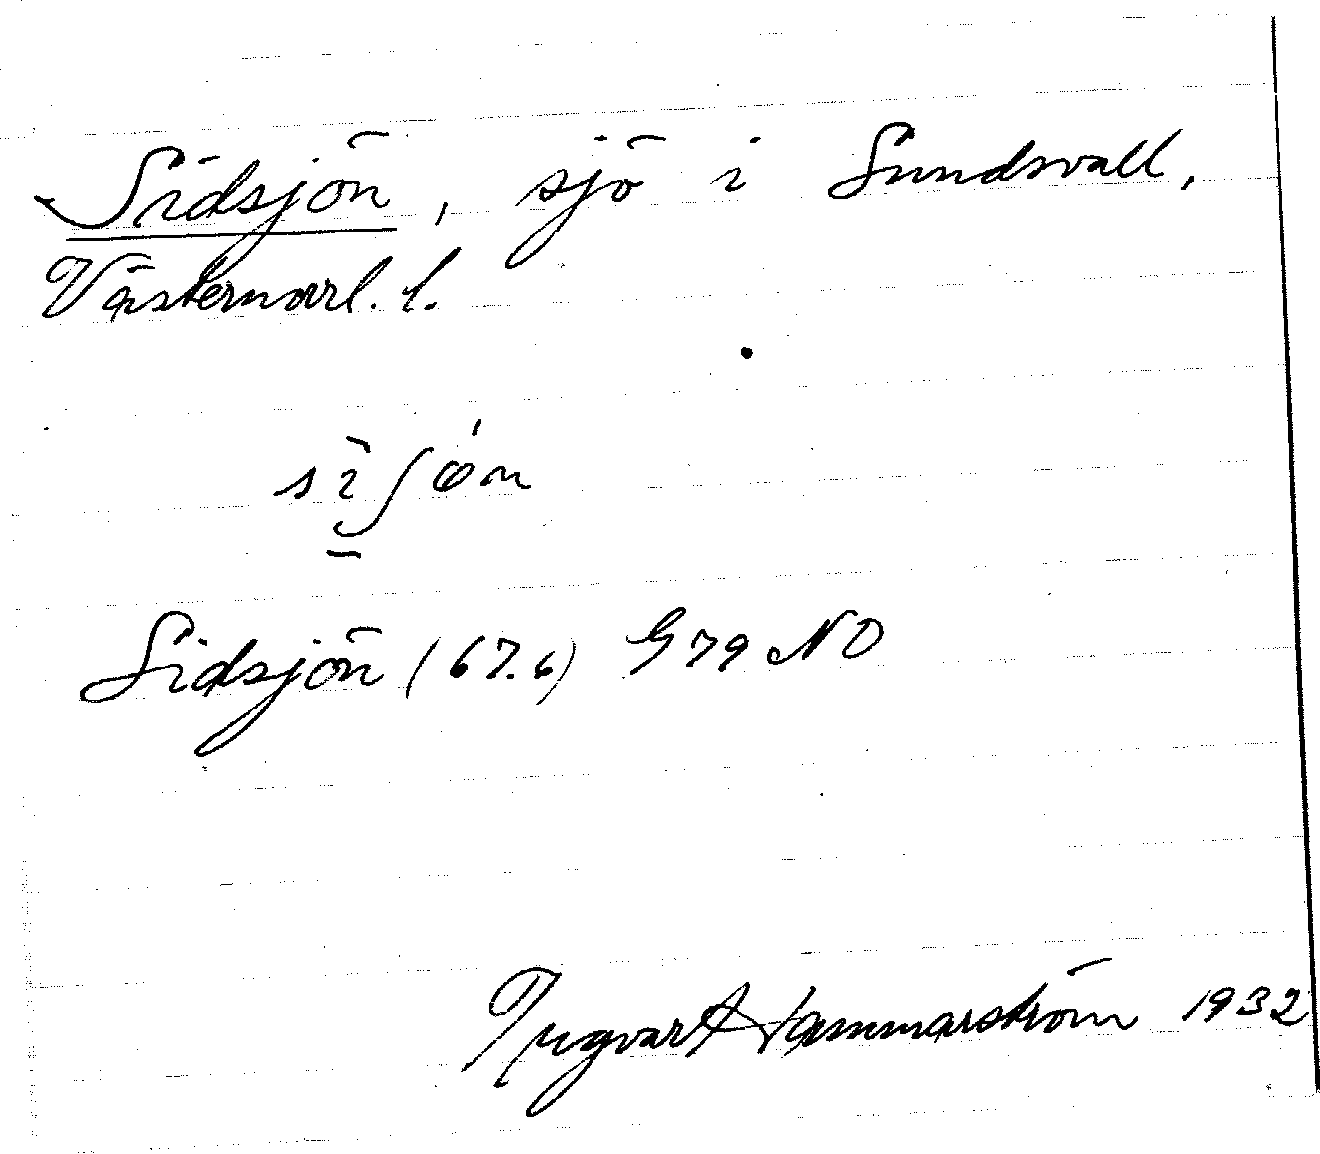 Sidsjön, sjö i Sundsvall,
Västernorrl. l.
Sidsjön (67.6) G79 NO
Ingvar Hammarström 1932